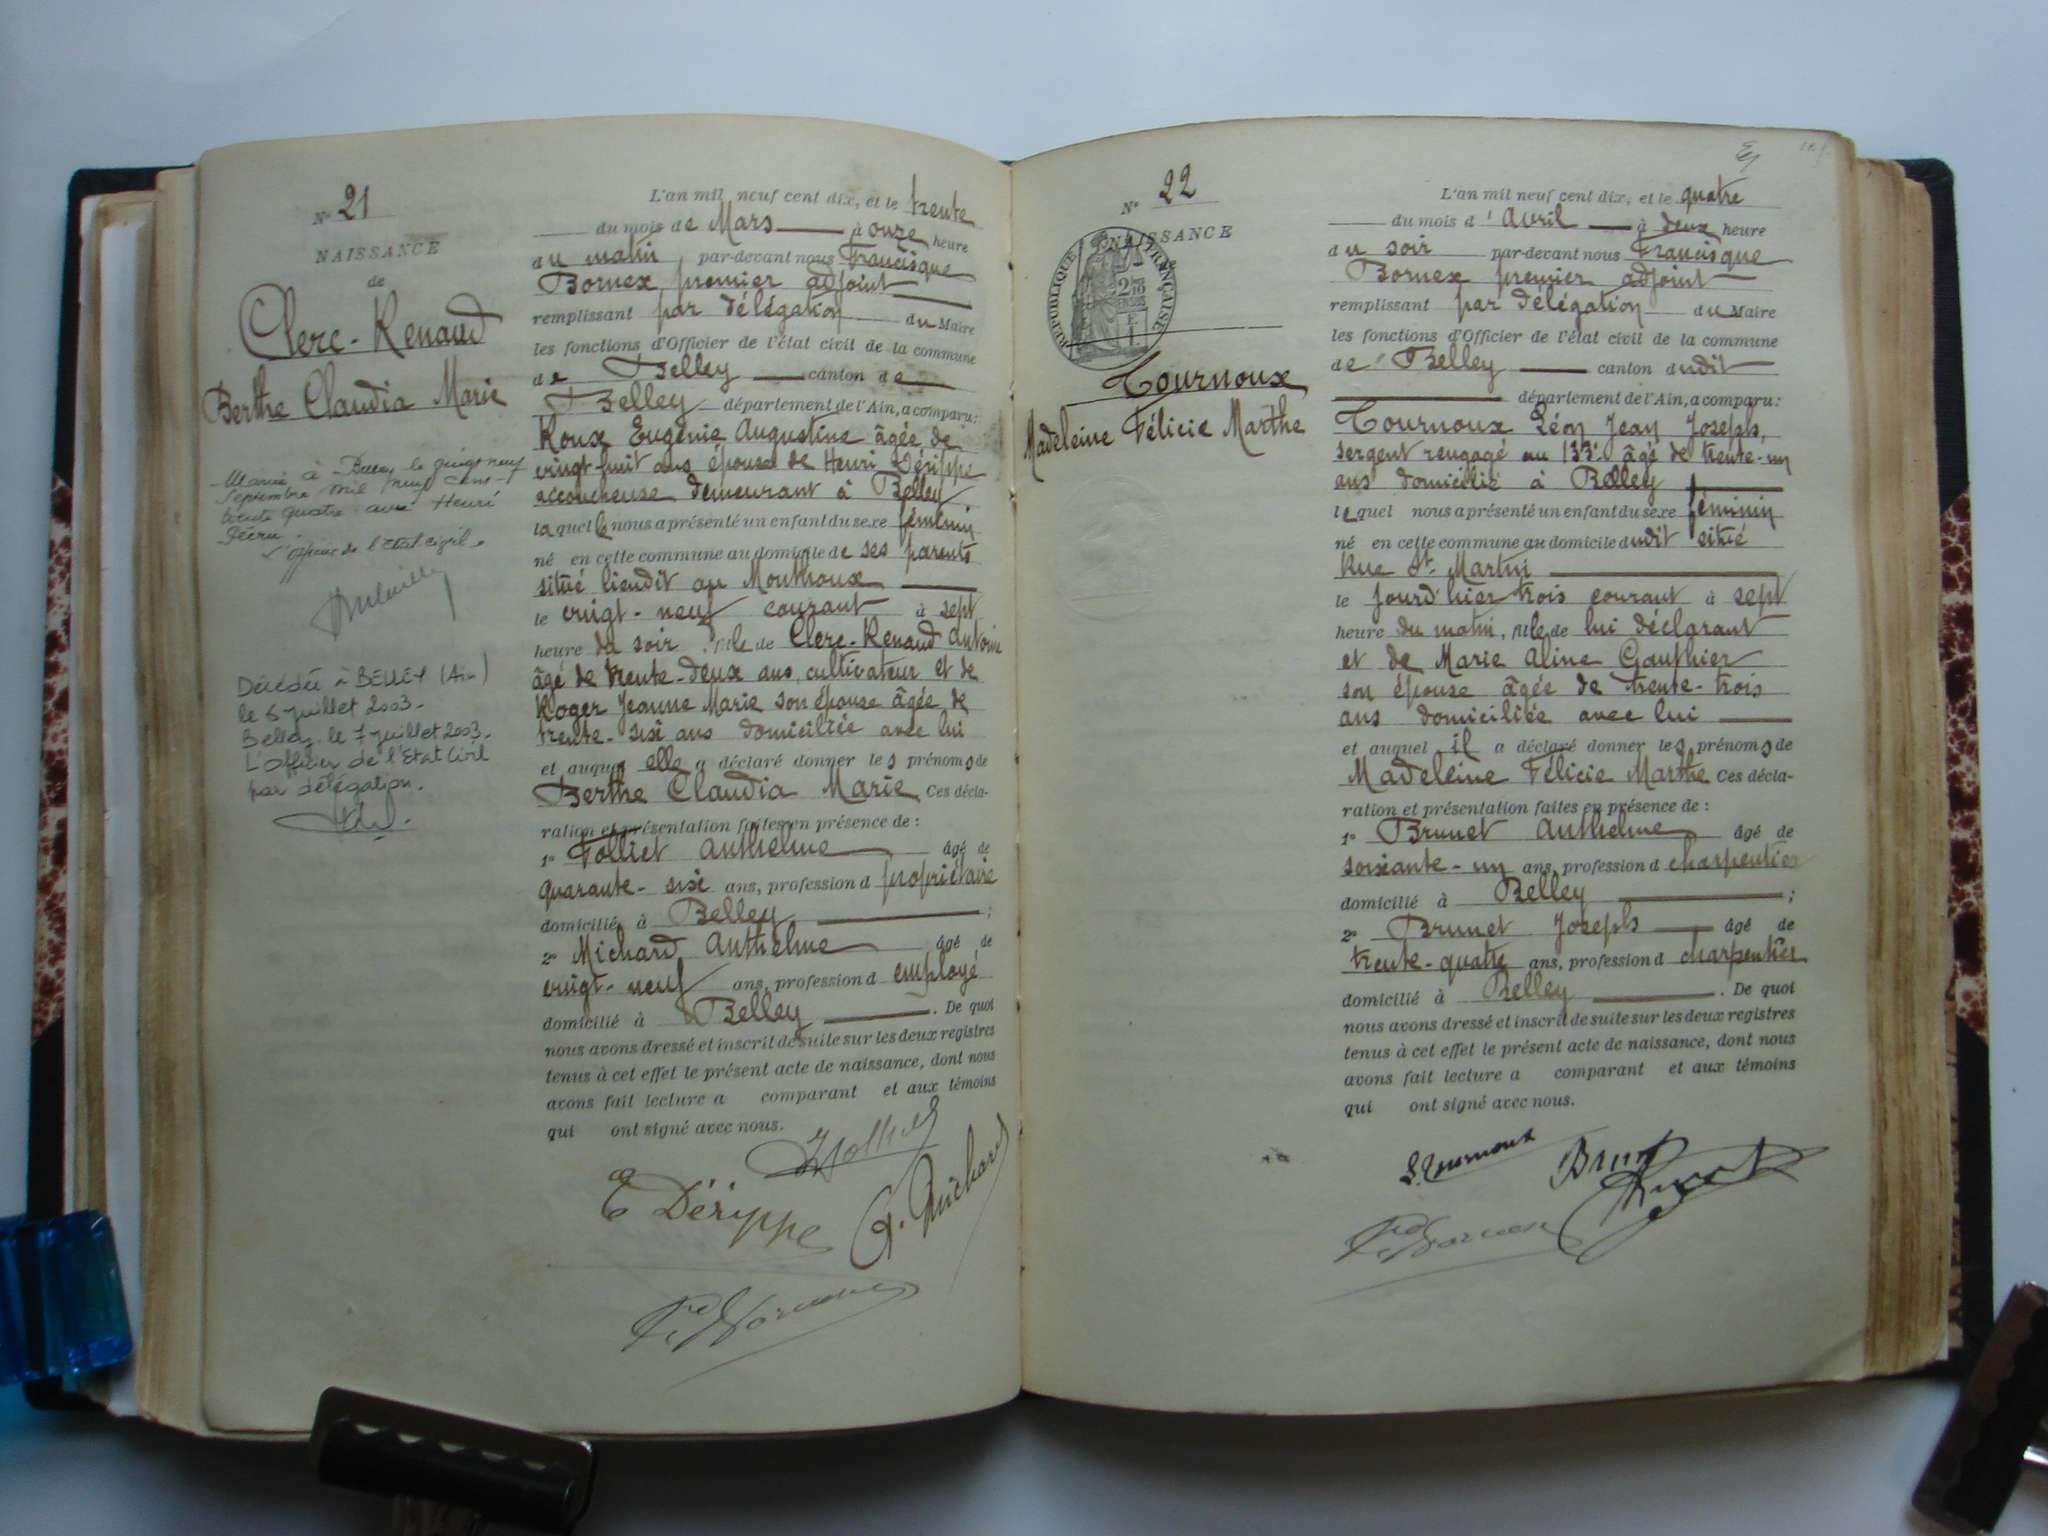 N° 21
NAISSANCE
de
Clerc-Renaud
Berthe Claudia Marie
Marié à le vingt neuf
Septembre mil neuf cent
trente quatre avec Henri
L'officier de l'Etat civil
Décédée à BELLEY (Ain)
le 5 juillet 2003.
Belley, le 7 juillet 2003.
L'officier de l'Etat Civil
par délégation.
L'an mil neuf cent dix, et le trente
du mois de Mars à onze heure
du matin par-devant nous Francisque
Bornex, premier adjoint
remplissant par délégation du Maire
les fonctions d'Officier de l'état civil de la commune
de Belley canton de
Belley département de l'Ain, a comparu:
Roux Eugénie Augustine âgée de
vingt-huit ans épouse de Henri Dérippe
accoucheuse demeurant à Belley
laquelle nous a présenté un enfant du sexe féminin
né en cette commune au domicile de ses parents
situé lieudit au Monthoux
le vingt-neuf courant à sept
heure du soir, fille de Clerc-Renaud Antoine
âgé de trente-deux ans, cultivateur et de
Roger Jeanne Marie son épouse âgée de
trente-six ans domiciliée avec lui
et auquel elle a déclaré donner les prénoms de
Berthe Claudia Marie Ces décla-
ration et présentation faites en présence de :
1° Folliet Anthelme âgé de
quarante-six ans, profession d propriétaire
domicilié à Belley ;
2° Michard Anthelme âgé de
vingt-neuf ans, profession d employé
domicilié à Belley . De quoi
nous avons dressé et inscrit de suite sur les deux registres
tenus à cet effet le présent acte de naissance, dont nous
avons fait lecture a comparant et aux témoins
qui ont signé avec nous.
E Dérippe
A. Michard
N° 22
NAISSANCE
RÉPUBLIQUE FRANÇAISE
Tournoux
Madeleine Félicie Marthe
L'an mil neuf cent dix, et le quatre
du mois d'Avril à deux heure
du soir par-devant nous Francisque
Bornex premier adjoint
remplissant par délégation du Maire
les fonctions d'Officier de l'état civil de la commune
de Belley canton dudit
département de l'Ain, a comparu:
Tournoux Léon Jean Joseph,
sergent rengagé au 133e âgé de trente-un
ans domicilié à Belley
lequel nous a présenté un enfant du sexe féminin
né en cette commune au domicile dudit situé
Rue St. Martin
le jourd'hier trois courant à sept
heure du matin, fille de lui déclarant
et de Marie Aline Gauthier
son épouse âgée de trente-trois
ans domiciliée avec lui
et auquel il a déclaré donner les prénoms de
Madeleine Félicie Marthe Ces décla-
ration et présentation faites en présence de :
1° Brunet Anthelme âgé de
soixante-un ans, profession d charpentier
domicilié à Belley ;
2° Brunet Joseph âgé de
trente-quatre ans, profession d charpentier
domicilié à Belley . De quoi
nous avons dressé et inscrit de suite sur les deux registres
tenus à cet effet le présent acte de naissance, dont nous
avons fait lecture a comparant et aux témoins
qui ont signé avec nous.
L. Tournoux